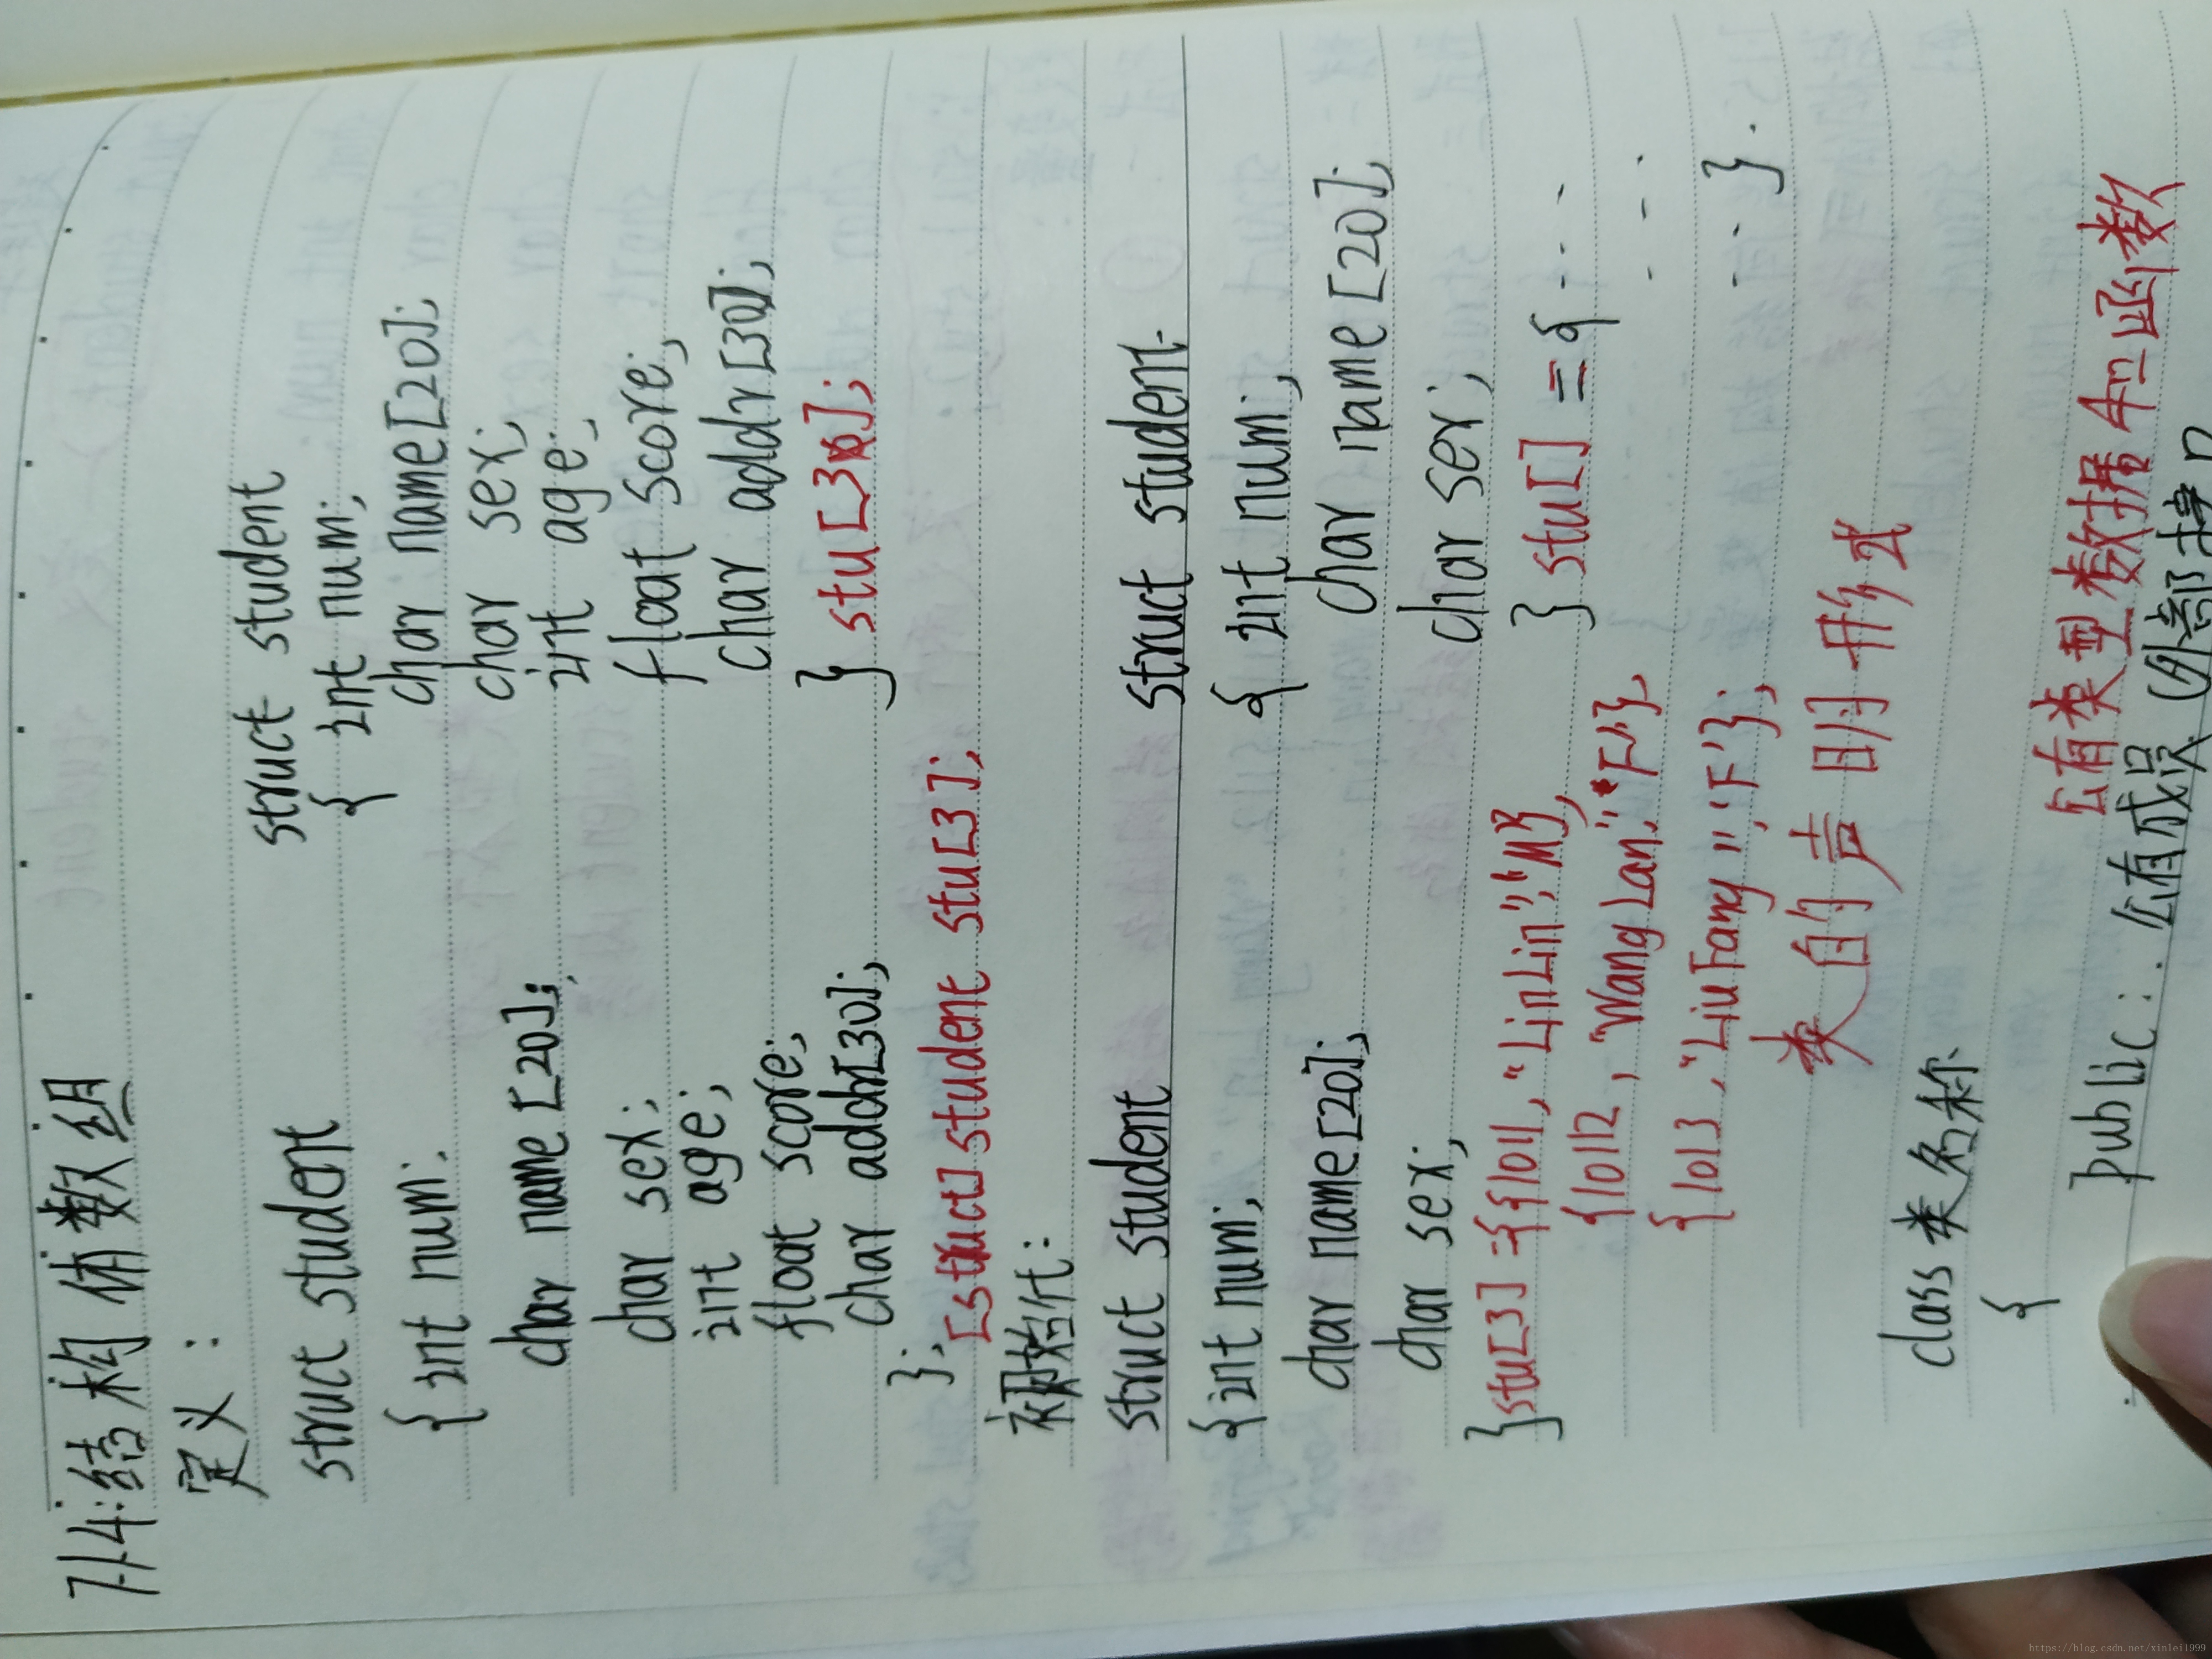 7.1.4:结构体数组
定义:
struct student
{ int num;
char name[20];
char sex;
int age;
float score;
char addr[30];
};
[struct] student stu[3];
struct student
{ int num;
char name[20];
char sex;
int age;
float score;
char addr[30];
} stu[3];
初始化:
struct student
{ int num;
char name[20];
char sex;
} stu[3] = {{1011, "LinLin", 'M'},
{1012, "WangLan", 'F'},
{1013, "LiuFang", 'F'};
struct student
{ int num;
char name[20];
char sex;
} stu[] = { ....
...
... }.
类的声明形式
class 类名称
{
公有类型数据和函数
public: 公有成员(外部接口
https://blog.csdn.net/xinlei1999